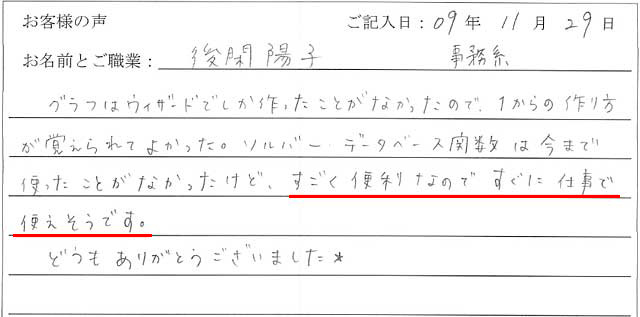 お客様の声 ご記入日：09年 11月 29日
お名前とご職業： 後閑 陽子 事務系
グラフはウィザードでしか作ったことがなかったので、1からの作り方
が覚えられてよかった。ソルバー・データベース関数は今まで
使ったことがなかったけど、すごく便利なのですぐに仕事で
使えそうです。
どうもありがとうございました*